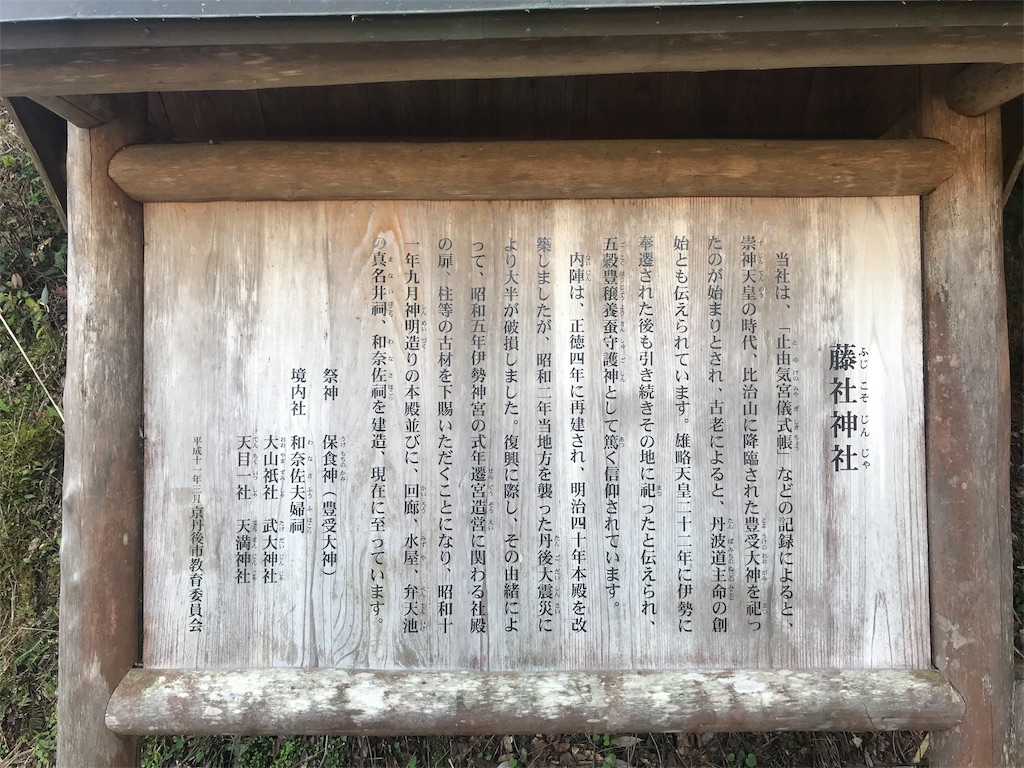 藤社神社
ふじこそじんじゃ
当社は、「止由気宮儀式帳」などの記録によると、
崇神天皇の時代、比治山に降臨された豊受大神を祀っ
たのが始まりとされ、古老によると、丹波道主命の創
始とも伝えられています。雄略天皇二十二年に伊勢に
奉遷された後も引き続きその地に祀ったと伝えられ、
五穀豊穣養蚕守護神として篤く信仰されています。
内陣は、正徳四年に再建され、明治四十年本殿を改
築しましたが、昭和二年当地方を襲った丹後大震災に
より大半が破損しました。復興に際し、その由緒によ
って、昭和五年伊勢神宮の式年遷宮造営に関わる社殿
の扉、柱等の古材を下賜いただくことになり、昭和十
一年九月神明造りの本殿並びに、回廊、水屋、弁天池
の真名井祠、和奈佐祠を建造、現在に至っています。
祭神 保食神(豊受大神)
境内社 和奈佐夫婦祠
大山祇社 武大神社
天目一社 天満神社
平成十一年三月 京丹後市教育委員会